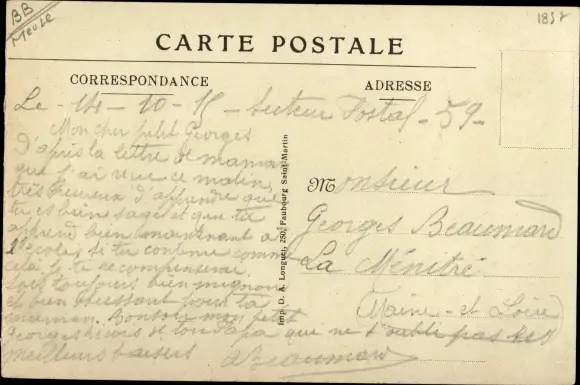 BB
Meuse
1857
CARTE POSTALE
CORRESPONDANCE
ADRESSE
Le - 14 - 10 - 15 - Secteur Postal - 59 -
Mon cher petit Georges
d'après la lettre de maman
que j'ai reçue ce matin,
très heureux d'apprendre que
tu es bien sage et que tu
apprend bien maintenant à
l'école, si tu continue comme
cela je te recompenserai
Sois toujours bien mignon
et bien obeissant pour ta
maman. Bonsoir mon petit
Georges reçois de ton Papa que ne t'oubli pas les
meilleurs baisers
GBeaumard
Imp. D. A. Longuet, 250, Faubourg Saint-Martin
Monsieur
Georges Beaumard
La Ménitré
Maine - et Loire